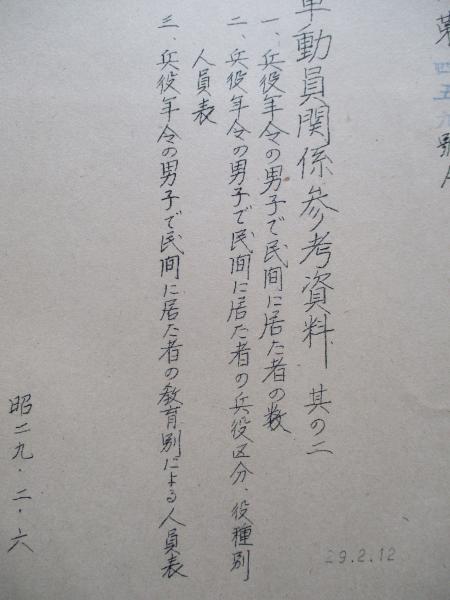 第四五九号
軍動員関係参考資料 其の二
一、兵役年令の男子で民間に居た者の数
二、兵役年令の男子で民間に居た者の兵役区分、役種別
人員表
三、兵役年令の男子で民間に居た者の教育別による人員表
昭二九・二・六
29.2.12